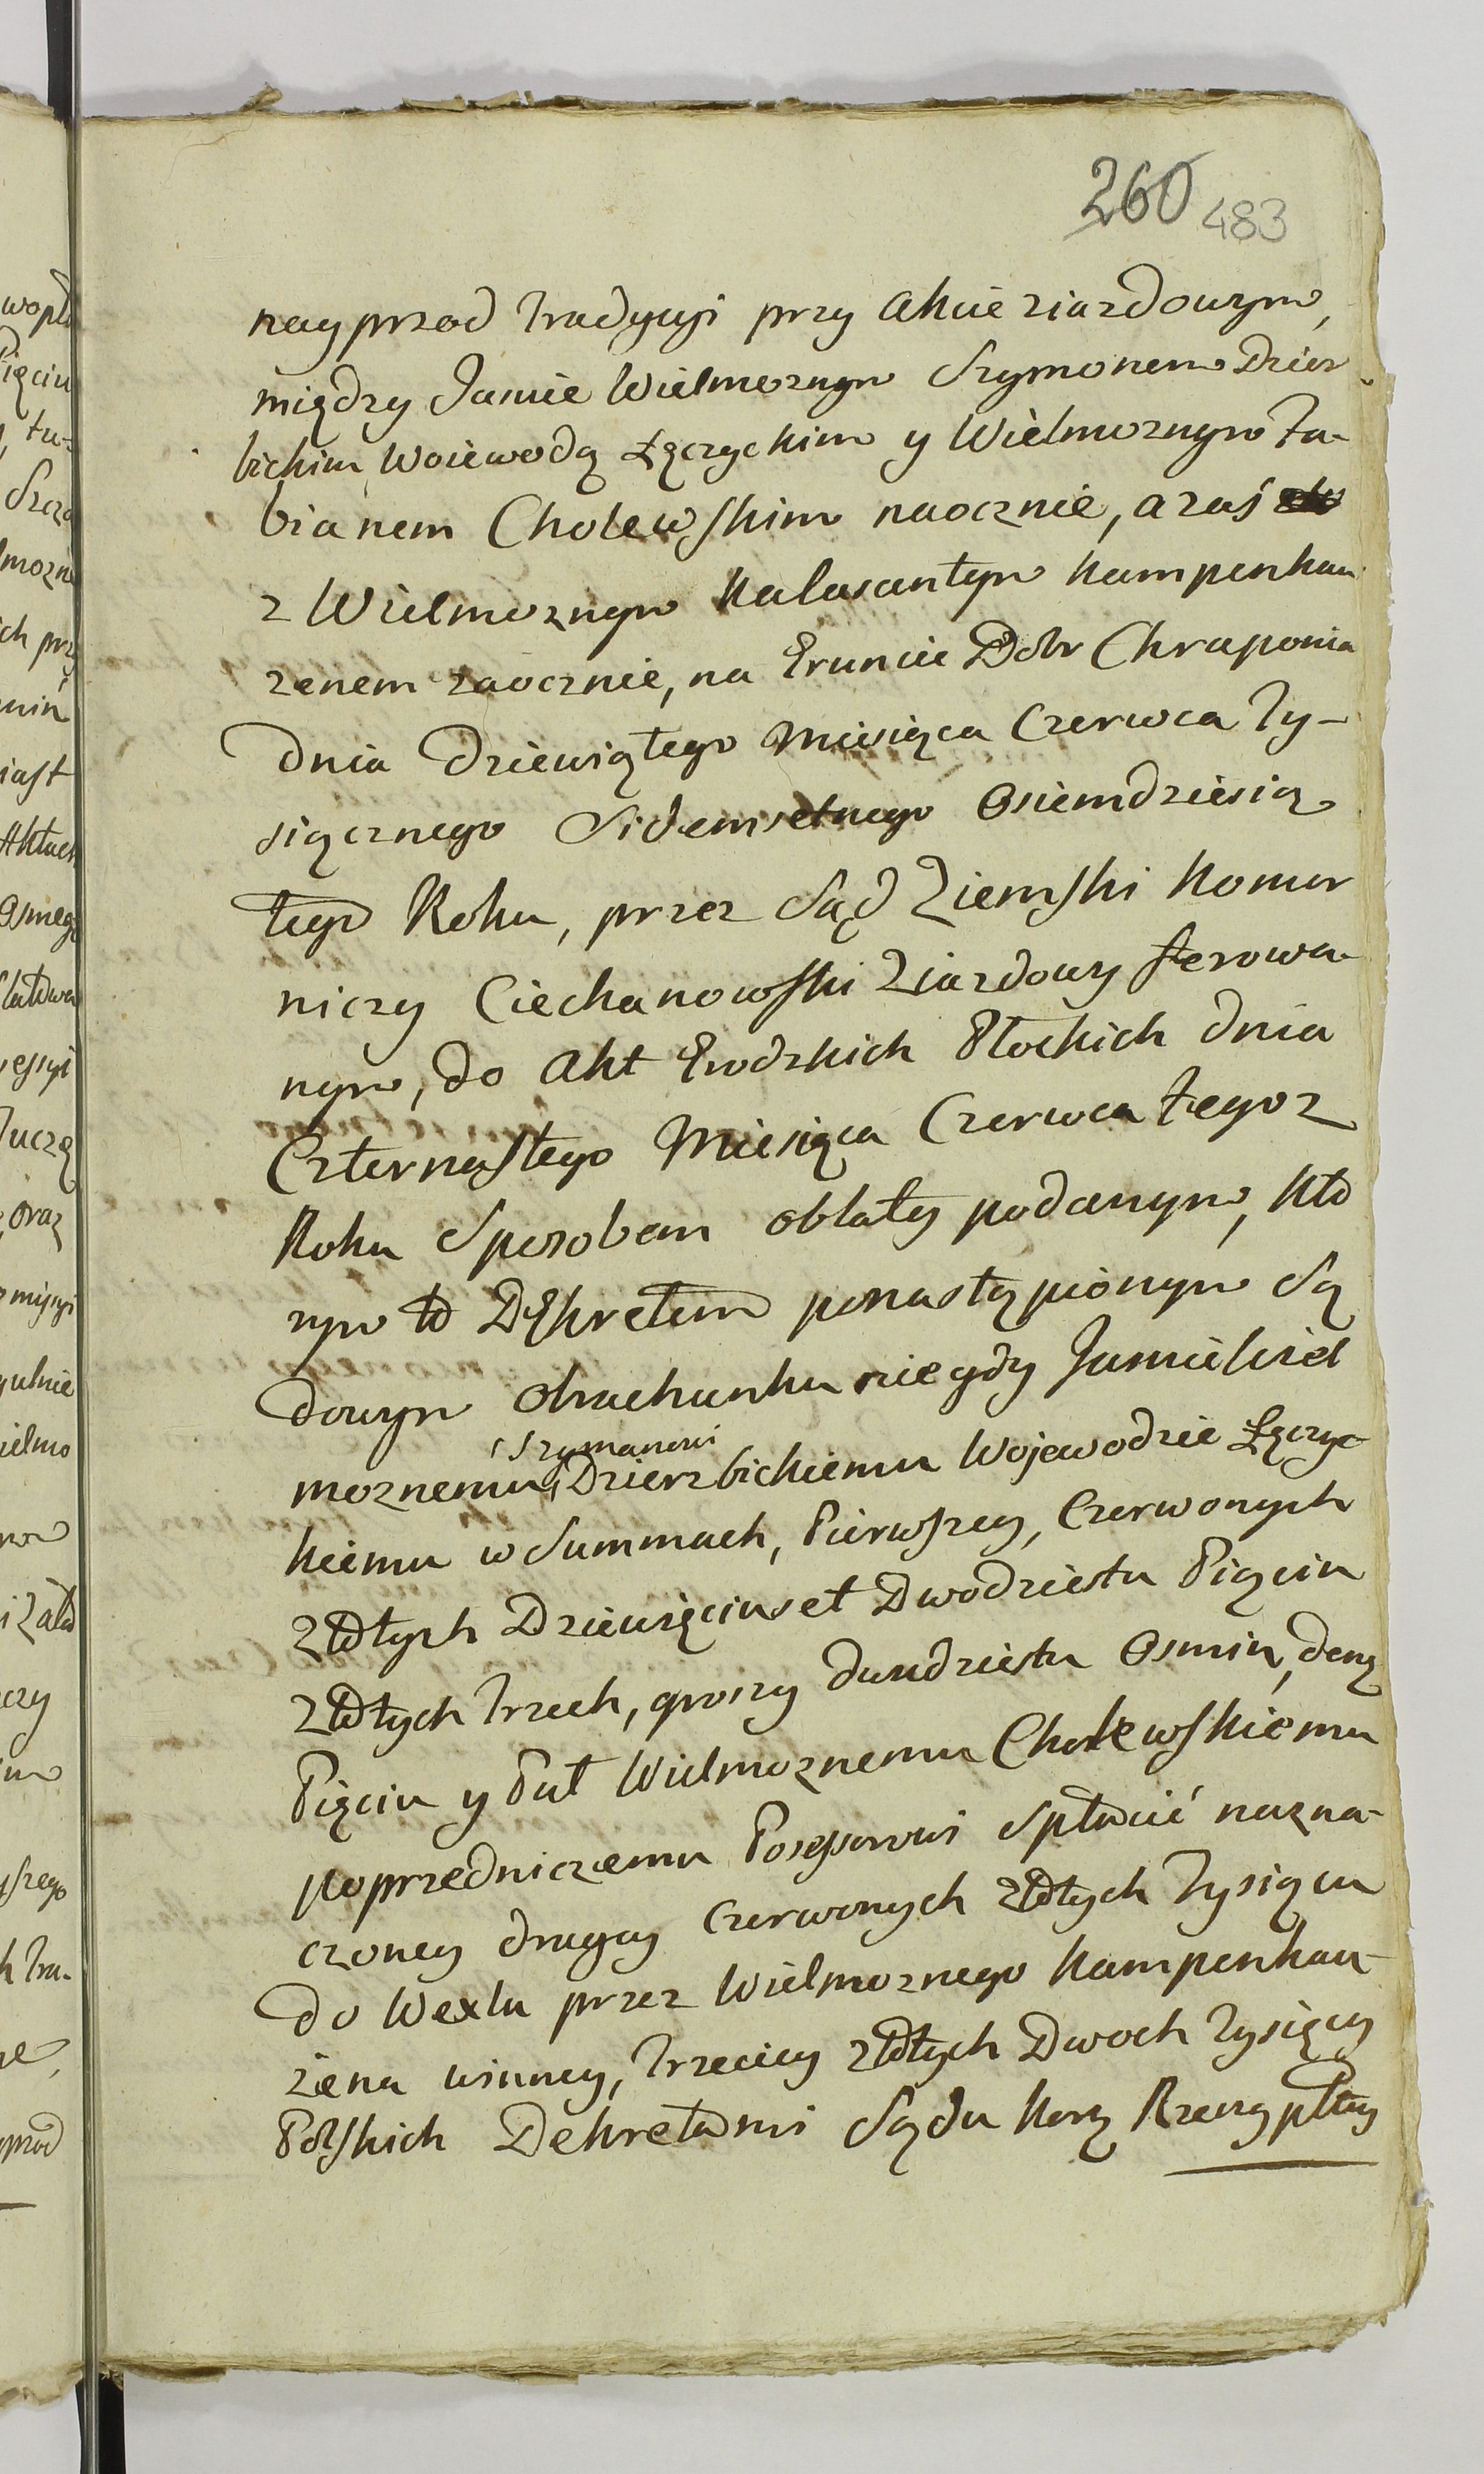 260 483
nayprzod Tradycyi przy Akcie ziazdowym,
między Jasnie Wielmoznym Szymonem Dzier
bickim Woiewodą Łęczyckim y Wielmoznym Fa-
bianem Cholewskim naocznie, a zaś
z Wielmoznym Kalasantym Kampenhau
zenem zaocznie, na Gruncie Dobr Chraponia
dnia dziewiątego Miesiąca Czerwca Ty-
siącznego Siedemsetnego Osiemdziesią
tego Roku, przez Sąd Ziemski Komor
niczy Ciechanowski Ziazdowy ferowa-
nym, do Akt Grodzkich Płockich dnia
Czternastego Miesiąca Czerwca tegoz
Roku Sposobem oblaty podanym, kto
rym to Dekretem ponastąpionym Są
dowym obrachunku niegdy Jasnie Wiel
Szymanowi
moznemu Dzierzbickiemu Wojewodzie Łęczyc
kiemu w Summach, Pierwszey, Czerwonych
Złotych Dziewięciuset Dwodziestu Pięciu
Złotych Trzech, groszy dwudziestu Osmiu, deną
Pięciu y Puł Wielmoznemu Cholewskiemu
poprzedniczemu Possessorowi Spłacić nazna-
czoney drugiey Czerwonych Złotych Tysiącu
do Wexlu przez Wielmoznego Kampenhau-
zena winney, Trzeciey złotych Dwoch Tysięcy
Polskich Dekretami Sądu Korą Rzeczypltey
wopła
Pięciu
, tu-
Szcz
lmozne
ch przy
iast
Aktach
Osmego
essyi
oraz
missyi
gulnie
ielmo
czy
szego
h Tra-
przod